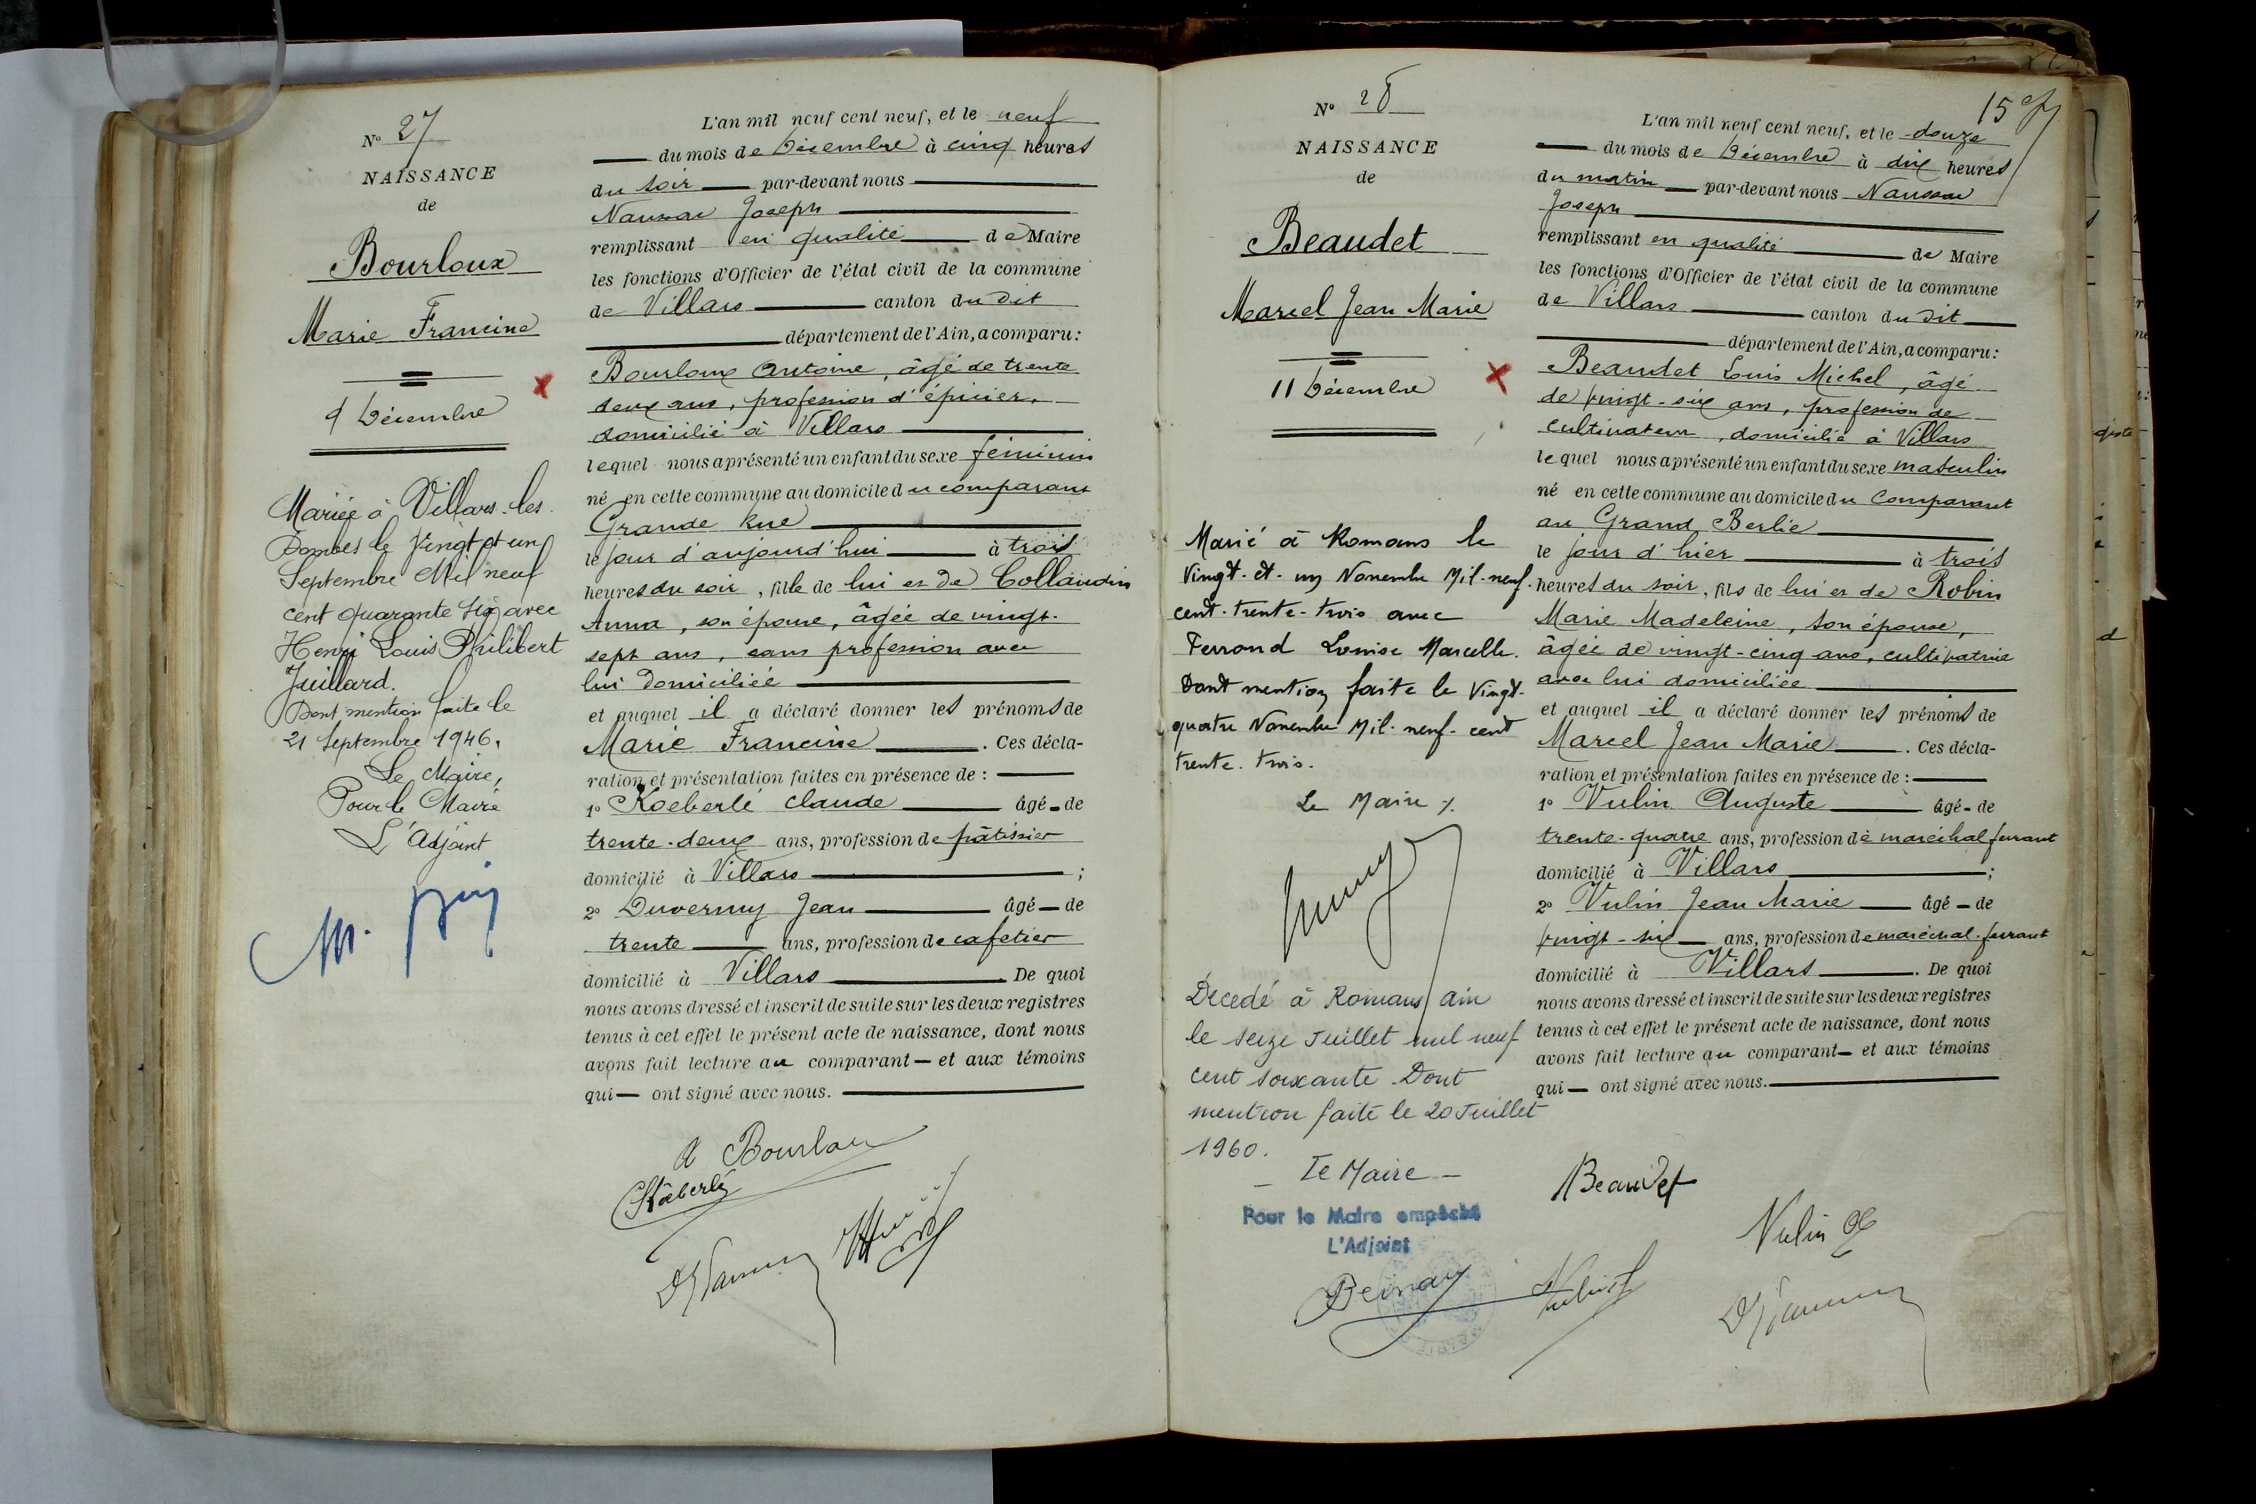 N° 27
NAISSANCE
de
Bourloux
Marie Francine
9 Décembre
Mariée à Villars-les-
Dombes le vingt et un
Septembre Mil neuf
cent quarante six avec
Henri Louis Philibert
Juillard.
Dont mention faite le
21 Septembre 1946.
Le Maire,
Pour le Maire
L'Adjoint
L'an mil neuf cent neuf, et le neuf
du mois de Décembre à cinq heures
du soir par-devant nous
Joseph
remplissant en qualité de Maire
les fonctions d'Officier de l'état civil de la commune
de Villars canton du dit
département de l'Ain, a comparu:
Bourloux Antoine, âgé de trente
deux ans, profession d'épicier,
domicilié à Villars
lequel nous a présenté un enfant du sexe féminin
né en cette commune au domicile du comparant
Grande Rue
le jour d'aujourd'hui à trois
heures du soir, fille de lui et de Collaudin
Anna, son épouse, âgée de vingt-
sept ans, sans profession avec
lui domiciliée
et auquel il a déclaré donner les prénoms de
Marie Francine. Ces décla-
ration et présentation faites en présence de :
1° Koeberlé Claude âgé de
trente-deux ans, profession de pâtissier
domicilié à Villars ;
2° Duvernay Jean âgé de
trente ans, profession de cafetier
domicilié à Villars De quoi
nous avons dressé et inscrit de suite sur les deux registres
tenus à cet effet le présent acte de naissance, dont nous
avons fait lecture au comparant et aux témoins
qui ont signé avec nous.
A Bourloux
CKoeberlé
N° 28
NAISSANCE
de
Beaudet
Marcel Jean Marie
11 Décembre
Marié à Romans le
Vingt-et-un Novembre Mil-neuf-
cent-trente-trois avec
Ferrond Louise Marcelle.
Dont mention faite le Vingt-
quatre Novembre Mil-neuf-cent
trente-trois.
Le Maire
Décédé à Romans ain
le seize Juillet mil neuf
cent soixante. Dont
mention faite le 20 Juillet
1960.
Le Maire
Pour le Maire empêché
L'Adjoint
15
L'an mil neuf cent neuf, et le douze
du mois de Décembre à dix heures
du matin par-devant nous
Joseph
remplissant en qualité de Maire
les fonctions d'Officier de l'état civil de la commune
de Villars canton du dit
département de l'Ain, a comparu:
Beaudet Louis Michel, âgé
de vingt-six ans, profession de
cultivateur, domicilié à Villars
lequel nous a présenté un enfant du sexe masculin
né en cette commune au domicile du comparant
au Grand Berlie
le jour d'hier à trois
heures du soir, fils de lui et de Robin
Marie Madeleine, son épouse,
âgée de vingt-cinq ans, cultivatrice
avec lui domiciliée
et auquel il a déclaré donner les prénoms de
Marcel Jean Marie. Ces décla-
ration et présentation faites en présence de :
1° Vulin Auguste âgé de
trente-quatre ans, profession de maréchal ferrant
domicilié à Villars ;
2° Vulin Jean Marie âgé de
vingt-six ans, profession de maréchal-ferrant
domicilié à Villars. De quoi
nous avons dressé et inscrit de suite sur les deux registres
tenus à cet effet le présent acte de naissance, dont nous
avons fait lecture au comparant et aux témoins
qui ont signé avec nous.
Beaudet
Vulin